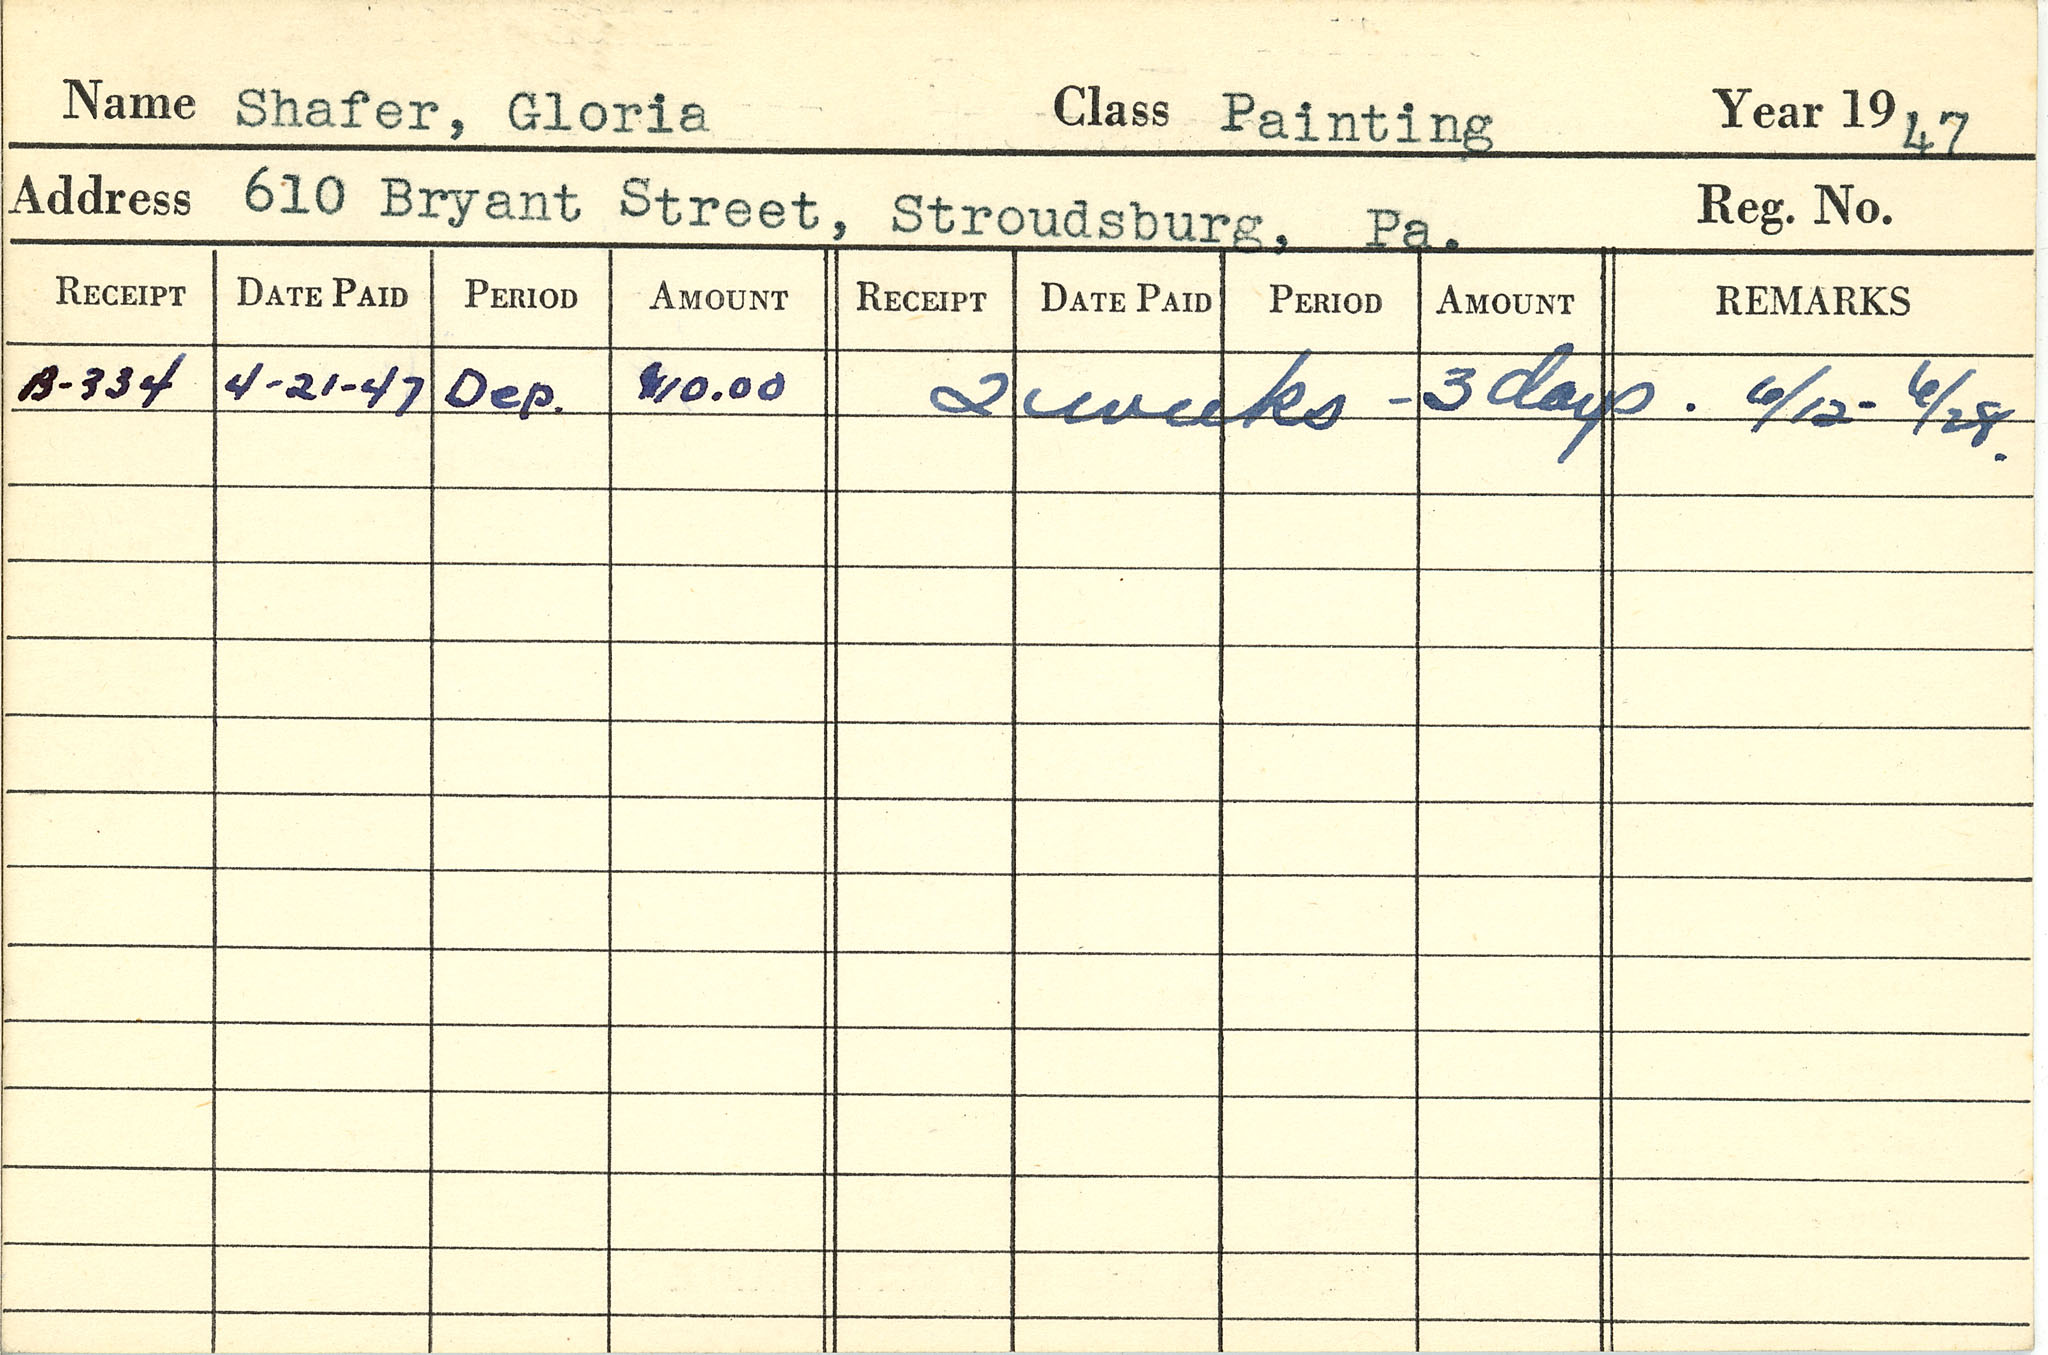 Name Shafer, Gloria Class Painting Year 1947
Address 610 Bryant Street, Stroudsburg, Pa. Reg. No.
RECEIPT DATE PAID PERIOD AMOUNT RECEIPT DATE PAID PERIOD AMOUNT REMARKS
B-334 4-21-47 Dep. $10.00 2 weeks - 3 days. 6/12 - 6/28.